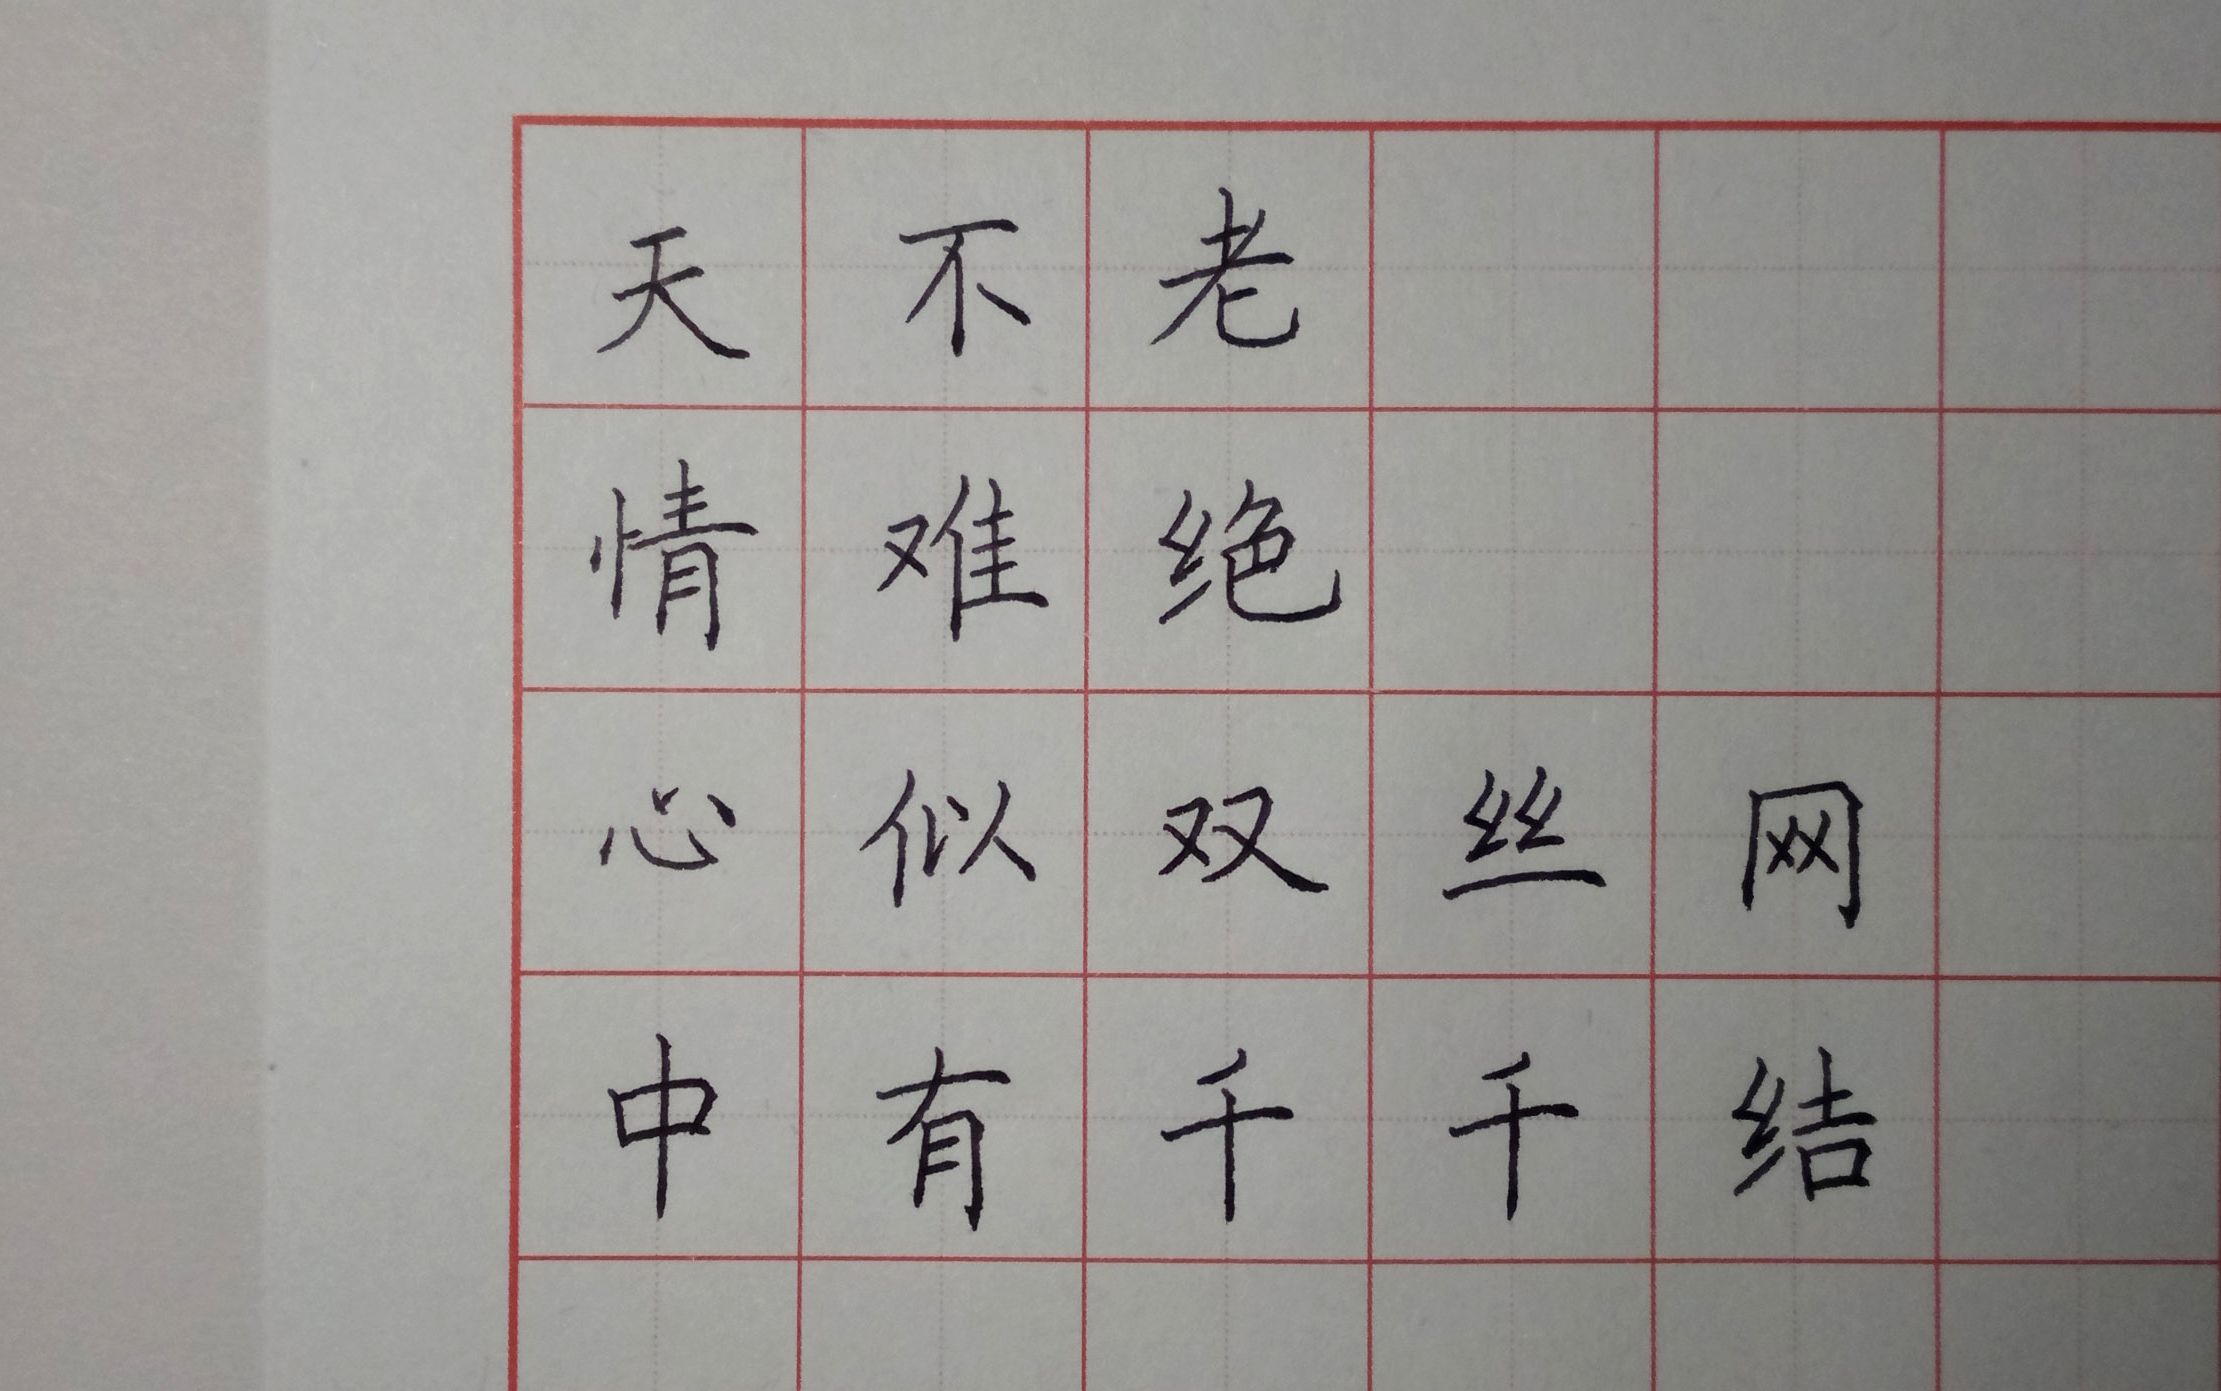 天不老
情难绝
心似双丝网
中有千千结